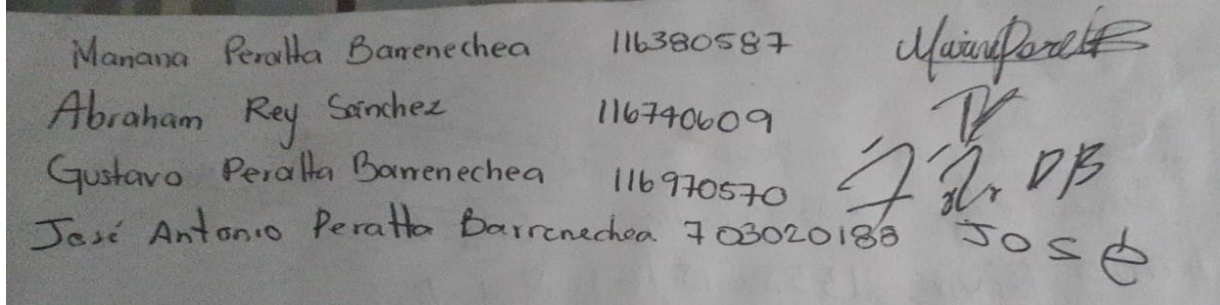 Mariana Peralta Barrenechea 116380587
Abraham Rey Sánchez 116740609
Gustavo Peralta Barrenechea 116970570
José Antonio Peralta Barrenechea 703020188 José